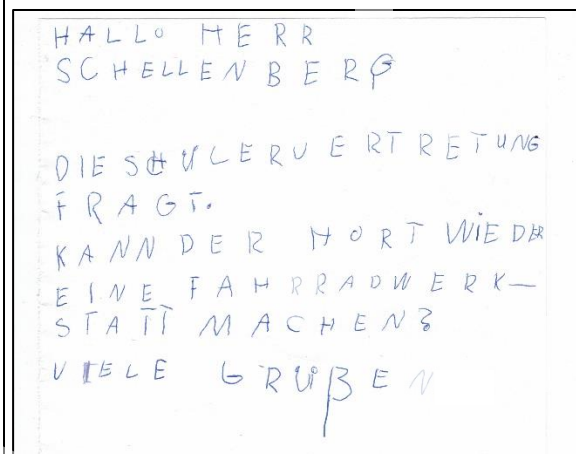 HALLO HERR
SCHELLENBERG
DIE SCHULERVERTRETUNG
FRAGT.
KANN DER HORT WIEDER
EINE FAHRRADWERK-
STATT MACHEN?
VIELE GRÜßEN